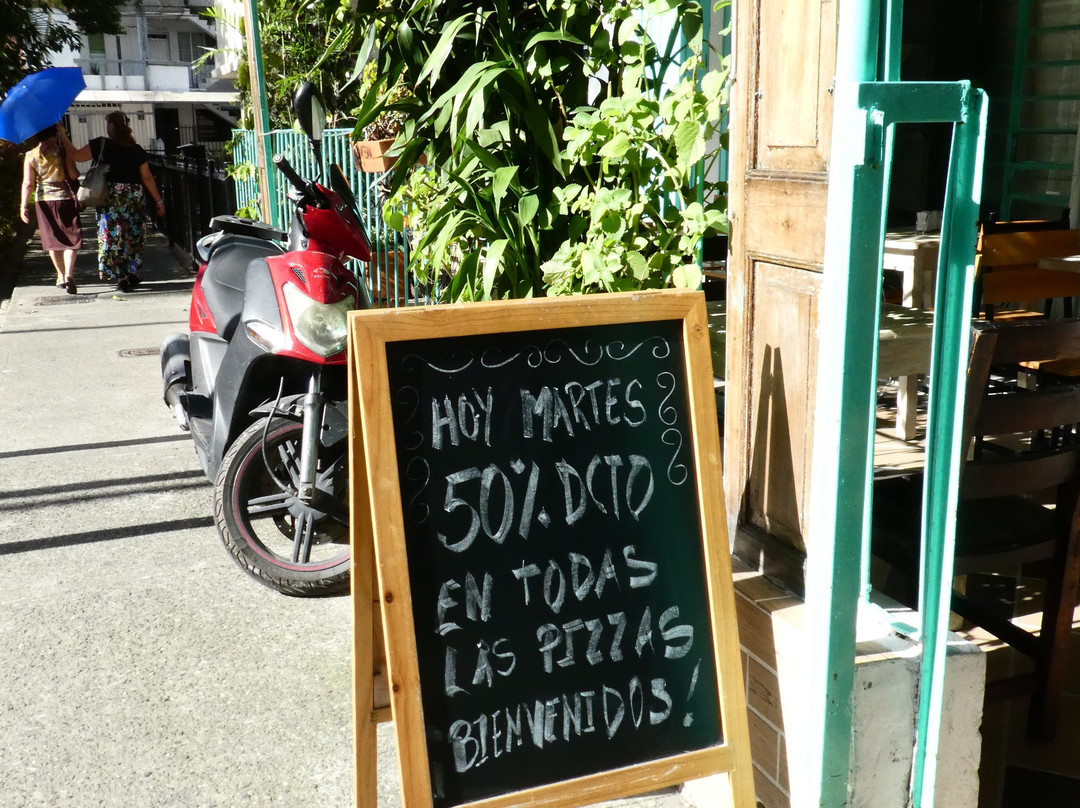 HOY MARTES
50% DCTO
EN TODAS
LAS PIZZAS
BIENVENIDOS!